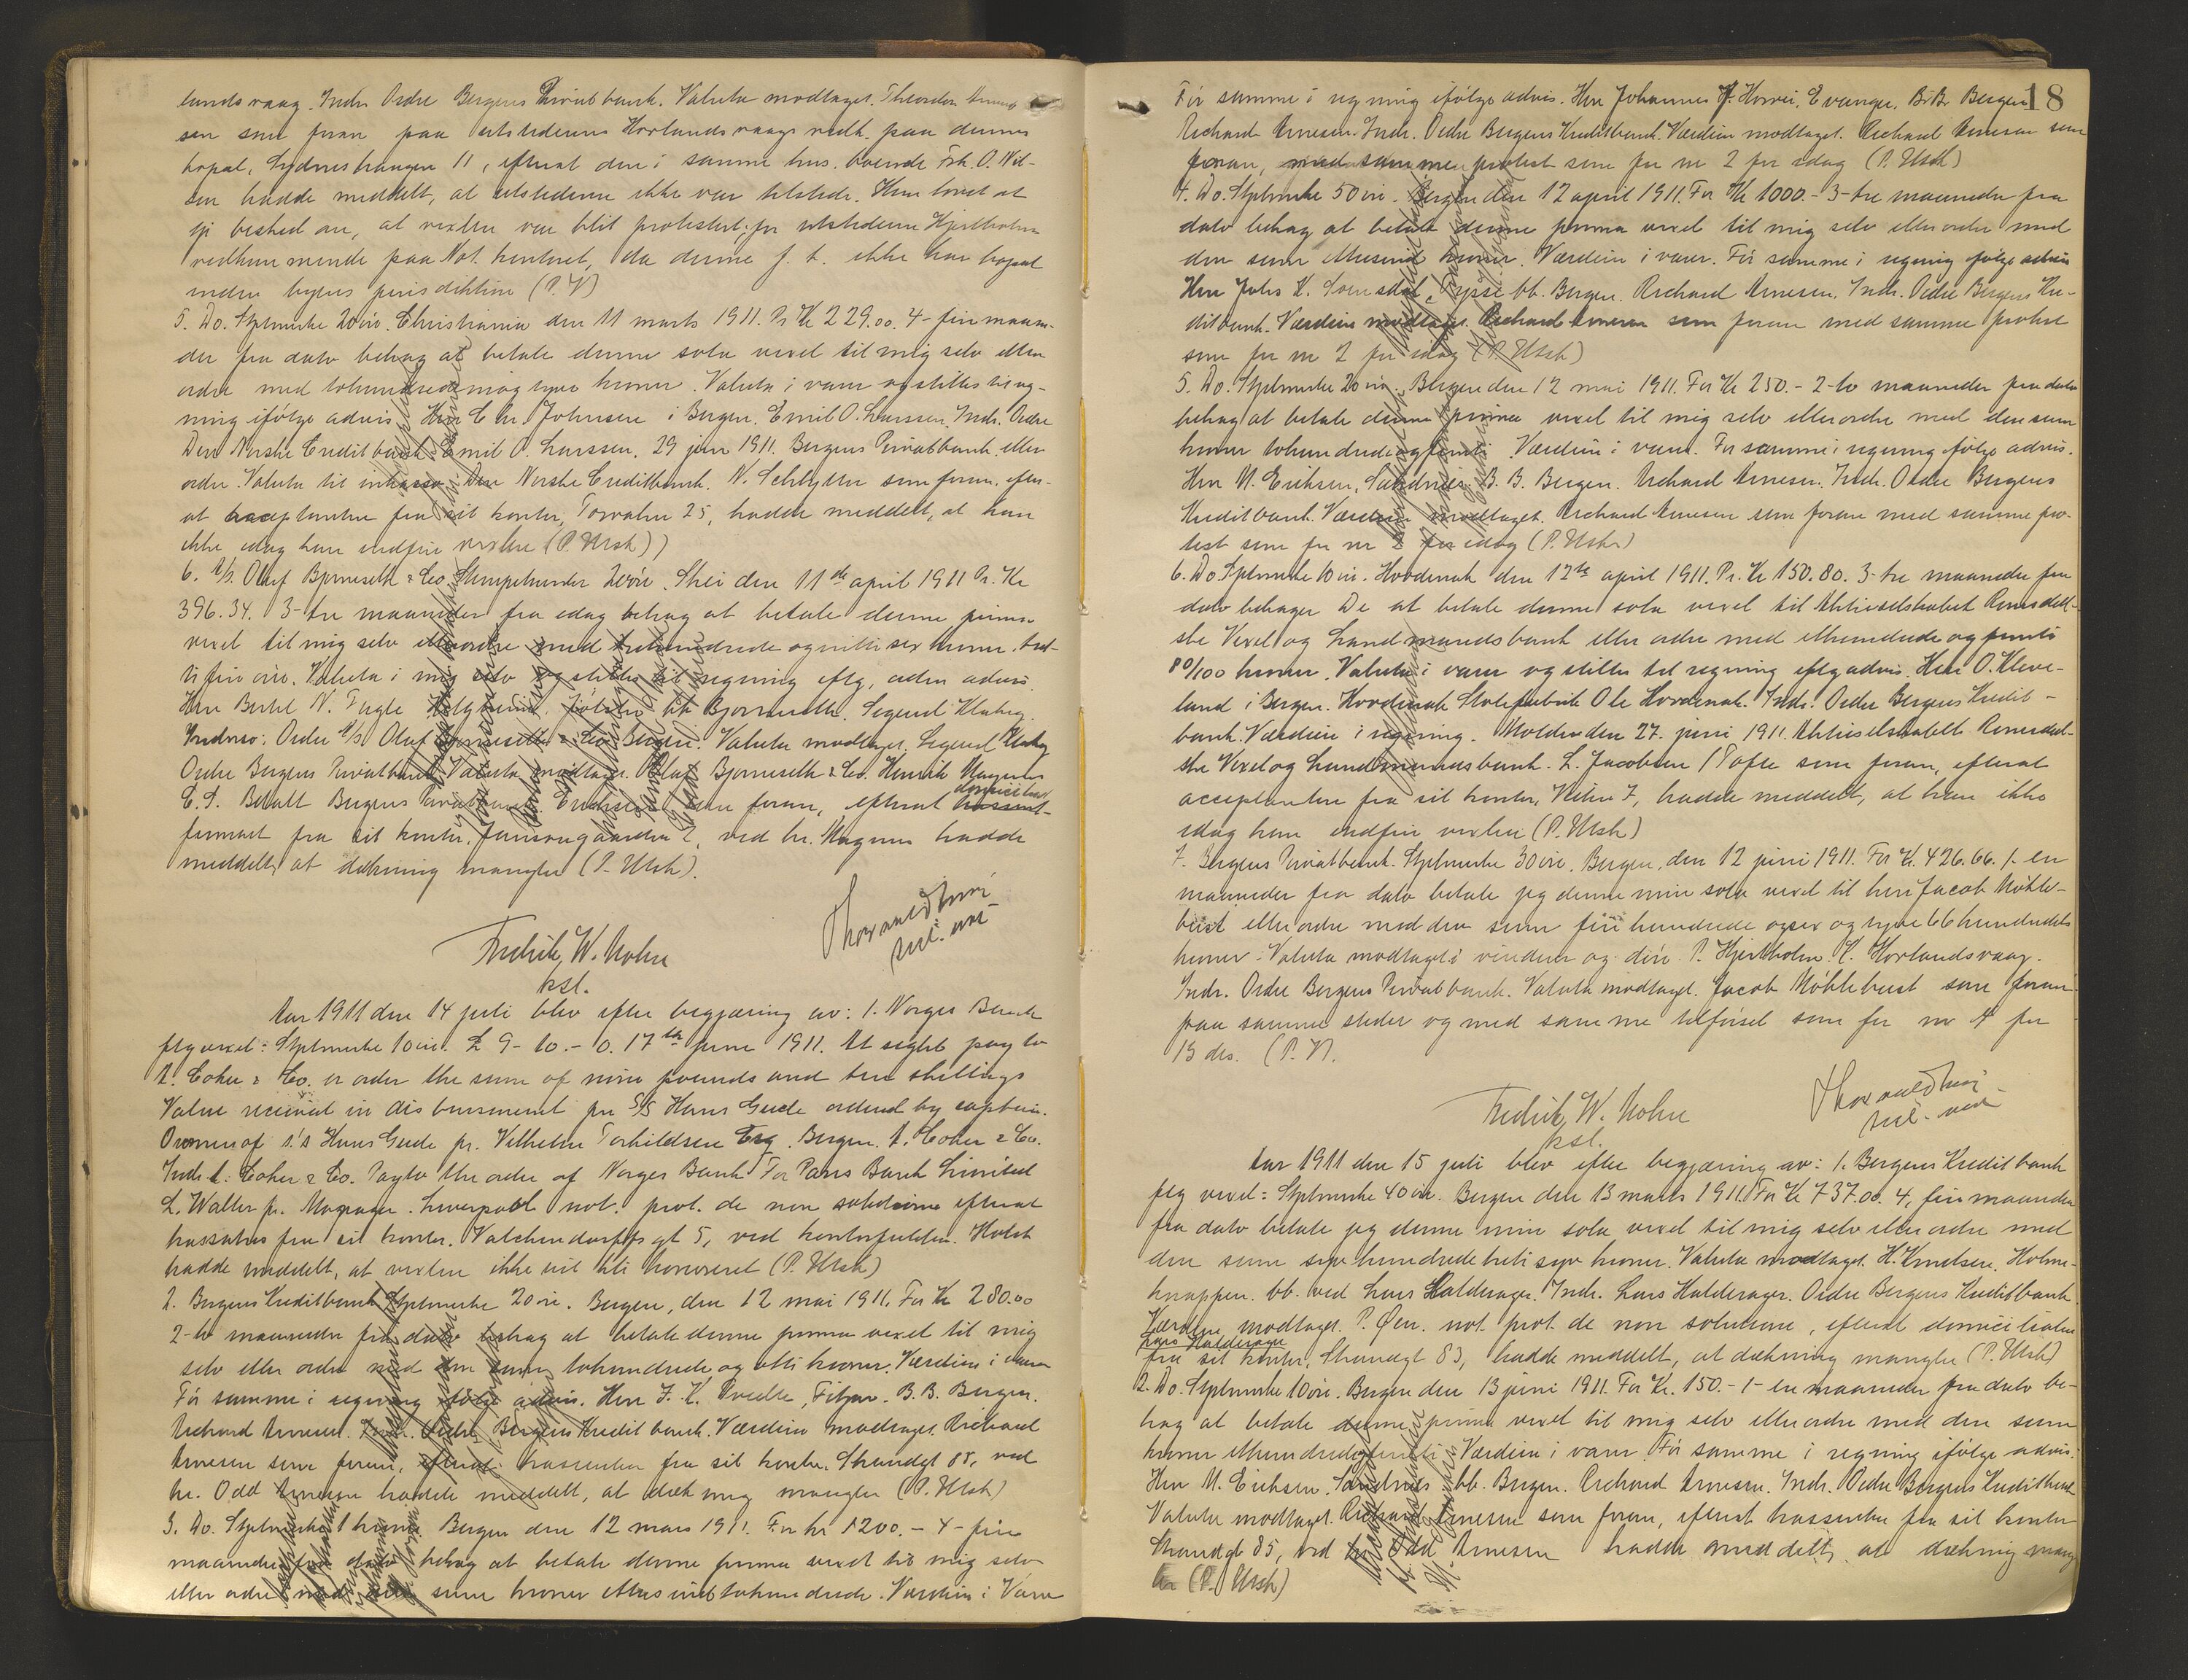 landsvaag. Indr. Ordre Bergens Privatbank. Valuta modtaget. Theodor
sen som foran paa utstederens Hovlandsvaags vedk. paa dennes
bopæl, Sydneshaugen 11, efterat den i samme hus boende Frk. O. Nil-
sen hadde meddelt, at utstederen ikke var tilstede. Hun lovet at
gi besked om, at vexlen var blit protestert, for utstederen Hjertholms
vedkommende paa Not. kontoret, da denne f. t. ikke har bopæl
inden byens jurisdiktion (P. V)
5. Do. Stplmerke 20 øre. Christiania den 11 marts 1911. Pr Kr 229.00. 4-fire maane-
der fra dato behag at betale denne sola vexel til mig selv eller
ordre med tohundredeognityve kroner. Valuta i varer og stilles til reg-
ning ifølge advis. Herr C. Chr. Johnsen i Bergen. Emil O. Larssen. Indr. Ordre
Den Norske Creditbank. Emil O. Larssen. 29 juni 1911. Bergens Privatbank eller
ordre. Valuta til inkasso. Den Norske Creditbank. N. Schlytter som foran, efter-
at acceptanten fra sit kontor, Torvalm 25, hadde meddelt, at han
ikke idag kan indfri vexlen (P. Utsk))
6. A/S. Oluf Bjørneseth & Co. Stempelmerker 20 øre. Skei den 11te april 1911 Pr. Kr
396.34. 3-tre maaneder fra idag behag at betale denne prima
vexel til mig selv eller ordre med trehundrede og nitti sex kroner. tret-
ti fire øre. Valuta i mig selv og stilles til regning eftg. uden advis.
Herr Bertel N. Fugle Jølster bb Bjørneseth. Sigurd Klakeg.
Indoss: Ordre A/S Oluf Bjørneseth & Co Bergen. Valuta modtaget. Sigurd Klakeg
Ordre Bergens Privatbank. Valuta modtaget. Oluf Bjørneseth & Co. Henrik Magnus
C. S. Betalt Bergens Privatbank som foran, efterat domiciliat
firmaet fra sit kontor, Jansonsgaarden 2, ved hr. Magnus hadde
meddelt, at dækning mangler (P. Utsk).
Fredrik W. Mohn
kst.
Aar 1911 den 14 juli blev efter begjæring av: 1. Norges Bank
flg vexel: Stplmerke 10 øre. £ 9-10.-0. 17th June 1911. At sight pay to
A. Coker & Co. or order the sum of nine pounds and ten shillings
Value received in disbursement pr S/S Hans Gude ordered by captain.
Owners of s/s Hans Gude pr. Vilhelm Torkildsen Esq. Bergen. A. Coker & Co.
Indr. A. Coker & Co. Pay to the order of Norges Bank For Parrs Bank Limited
L. Walter pr. Manager. Liverpool not. prot. de non solutione efterat
trassaten fra sit kontor. Valchendorffs gt 5, ved kontorfuldm. Holst
hadde meddelt, at vexlen ikke vil bli honoreret (P. Utsk)
2. Bergens Kreditbank Stplmerke 20 øre. Bergen, den 12 mai 1911. For Kr 280.00
2-to maaneder fra dato behag at betale denne prima vexel til mig
selv eller ordre med den sum tohundrede og otti kroner. Værdien i varer
Før samme i regning ifølge advis. Herr J. K. Fitjar. B.B. Bergen.
Richard Arnesen. Indr. Ordre Bergens Kreditbank. Værdien modtaget. Richard
Arnesen som foran, efterat trassenten fra sit kontor. Strandgt 85, ved
hr. Odd Arnesen hadde meddelt, at dækning mangler (P. Utsk)
3. Do. Stplmerke 1 krone. Bergen den 12 mars 1911. For kr 1200.- 4-fire
maaneder fra dato behag at betale denne prima vexel til mig selv
eller ordre med den sum kroner ettusindtohundrede. Værdien i Varer
18
Før samme i regning ifølge advis. Herr Johannes J. Horvei, Evanger, B.B. Bergen
Richard Arnesen. Indr. Ordre Bergens Kreditbank. Værdien modtaget. Richard Arnesen som
foran, med samme protest som for nr 2 for idag (P. Utsk)
4. Do. Stplmerke 50 øre. Bergen den 12 april 1911. For Kr 1000.- 3-tre maaneder fra
dato behag at betale denne prima vexel til mig selv eller ordre med
den sum ettusind kroner. Værdien i varer. Før samme i regning ifølge advis
Herr Johs K. Trysse bb. Bergen. Richard Arnesen. Indr. Ordre Bergens Kre-
ditbank. Værdien modtaget. Richard Arnesen som foran med samme protest
som for nr 2 for idag (P. Utsk)
5. Do. Stplmerke 20 øre. Bergen den 12 mai 1911. For Kr 250.- 2-to maaneder fra dato
behag at betale denne prima vexel til mig selv eller ordre med den sum
kroner tohundredeogfemti. Værdien i varer. Før samme i regning ifølge advis.
Herr M. Eriksen, Sandnæs B. B. Bergen. Richard Arnesen. Indr. Ordre Bergens
Kreditbank. Værdien modtaget. Richard Arnesen som foran med samme pro-
test som for nr 2 for idag (P. Utsk)
6. Do Stplmerke 10 øre. Hovdenak den 12te april 1911. Pr. Kr 150.80. 3-tre maaneder fra
dato behager De at betale denne sola vexel til Aktieselskabet Romsdal-
ske Vexel og Landmandsbank eller ordre med etthundrede og femti
80/100 kroner. Valuta i varer og stilles til regning eftg advis. Herr O. Kleve-
land i Bergen. Hovdenak Stolefabrik Ole Hovdenak. Indr. Ordre Bergens Kredit-
bank. Værdien i regning. Molde den 27. juni 1911. Aktieselskabet Romsdal-
ske Vexel og Landmandsbank. L. Jacobsen / Tofte som foran, efterat
acceptanten fra sit kontor, 7, hadde meddelt, at han ikke
idag kan indfri vexlen (P. Utsk)
7. Bergens Privatbank. Stplmerke 30 øre. Bergen, den 12 juni 1911. For Kr. 426.66. 1-en
maaneder fra dato betale jeg denne min sola vexel til herr Jacob Møhle-
bust eller ordre med den sum fire hundrede ogsex og tyve 66 hundrededels
kroner. Valuta modtaget i vinduer og døre. P. Hjertholm. K. Hovlandsvaag.
Indr. Ordre Bergens Privatbank. Valuta modtaget. Jacob Møhlebust som foran
paa samme steder og med samme tilførsel som for nr 4 for
13 ds. (P. V).
Fredrik W. Mohn
kst.
Aar 1911 den 15 juli blev efter begjæring av: 1. Bergens Kreditbank
flg vexel: Stplmerke 40 øre. Bergen den 13 marts 1911. For Kr 737.00. 4, fire maaneder
fra dato betale jeg denne min sola vexel til mig selv eller ordre med
den sum syv hundrede treti syv kroner. Valuta modtaget. H. Knutsen. Holme-
knappen. bb. ved Lars Halderager. Indr. Lars Halderager. Ordre Bergens Kreditbank
Værdien modtaget. P. Øen. not. prot. de non solutione, efterat domiciliaten
Lars Halderager
fra sit kontor, Strandgt 83, hadde meddelt, at dækning mangler (P. Utsk)
2. Do. Stplmerke 10 øre. Bergen den 13 juni 1911. For Kr. 150.- 1-en maaneder fra dato be-
hag at betale denne prima vexel til mig selv eller ordre med den sum
kroner etthundredeogfemti. Værdien i varer. Før samme i regning ifølge advis.
Herr M. Eriksen. Sandnæs bb. Bergen. Richard Arnesen. Indr. Ordre Bergens Kreditbank
Valuta modtaget. Richard Arnesen som foran, efterat trassenten fra sit kontor
Strandgt 85, ved hr Odd Arnesen hadde meddelt, at dækning mang
ler (P. Utsk)